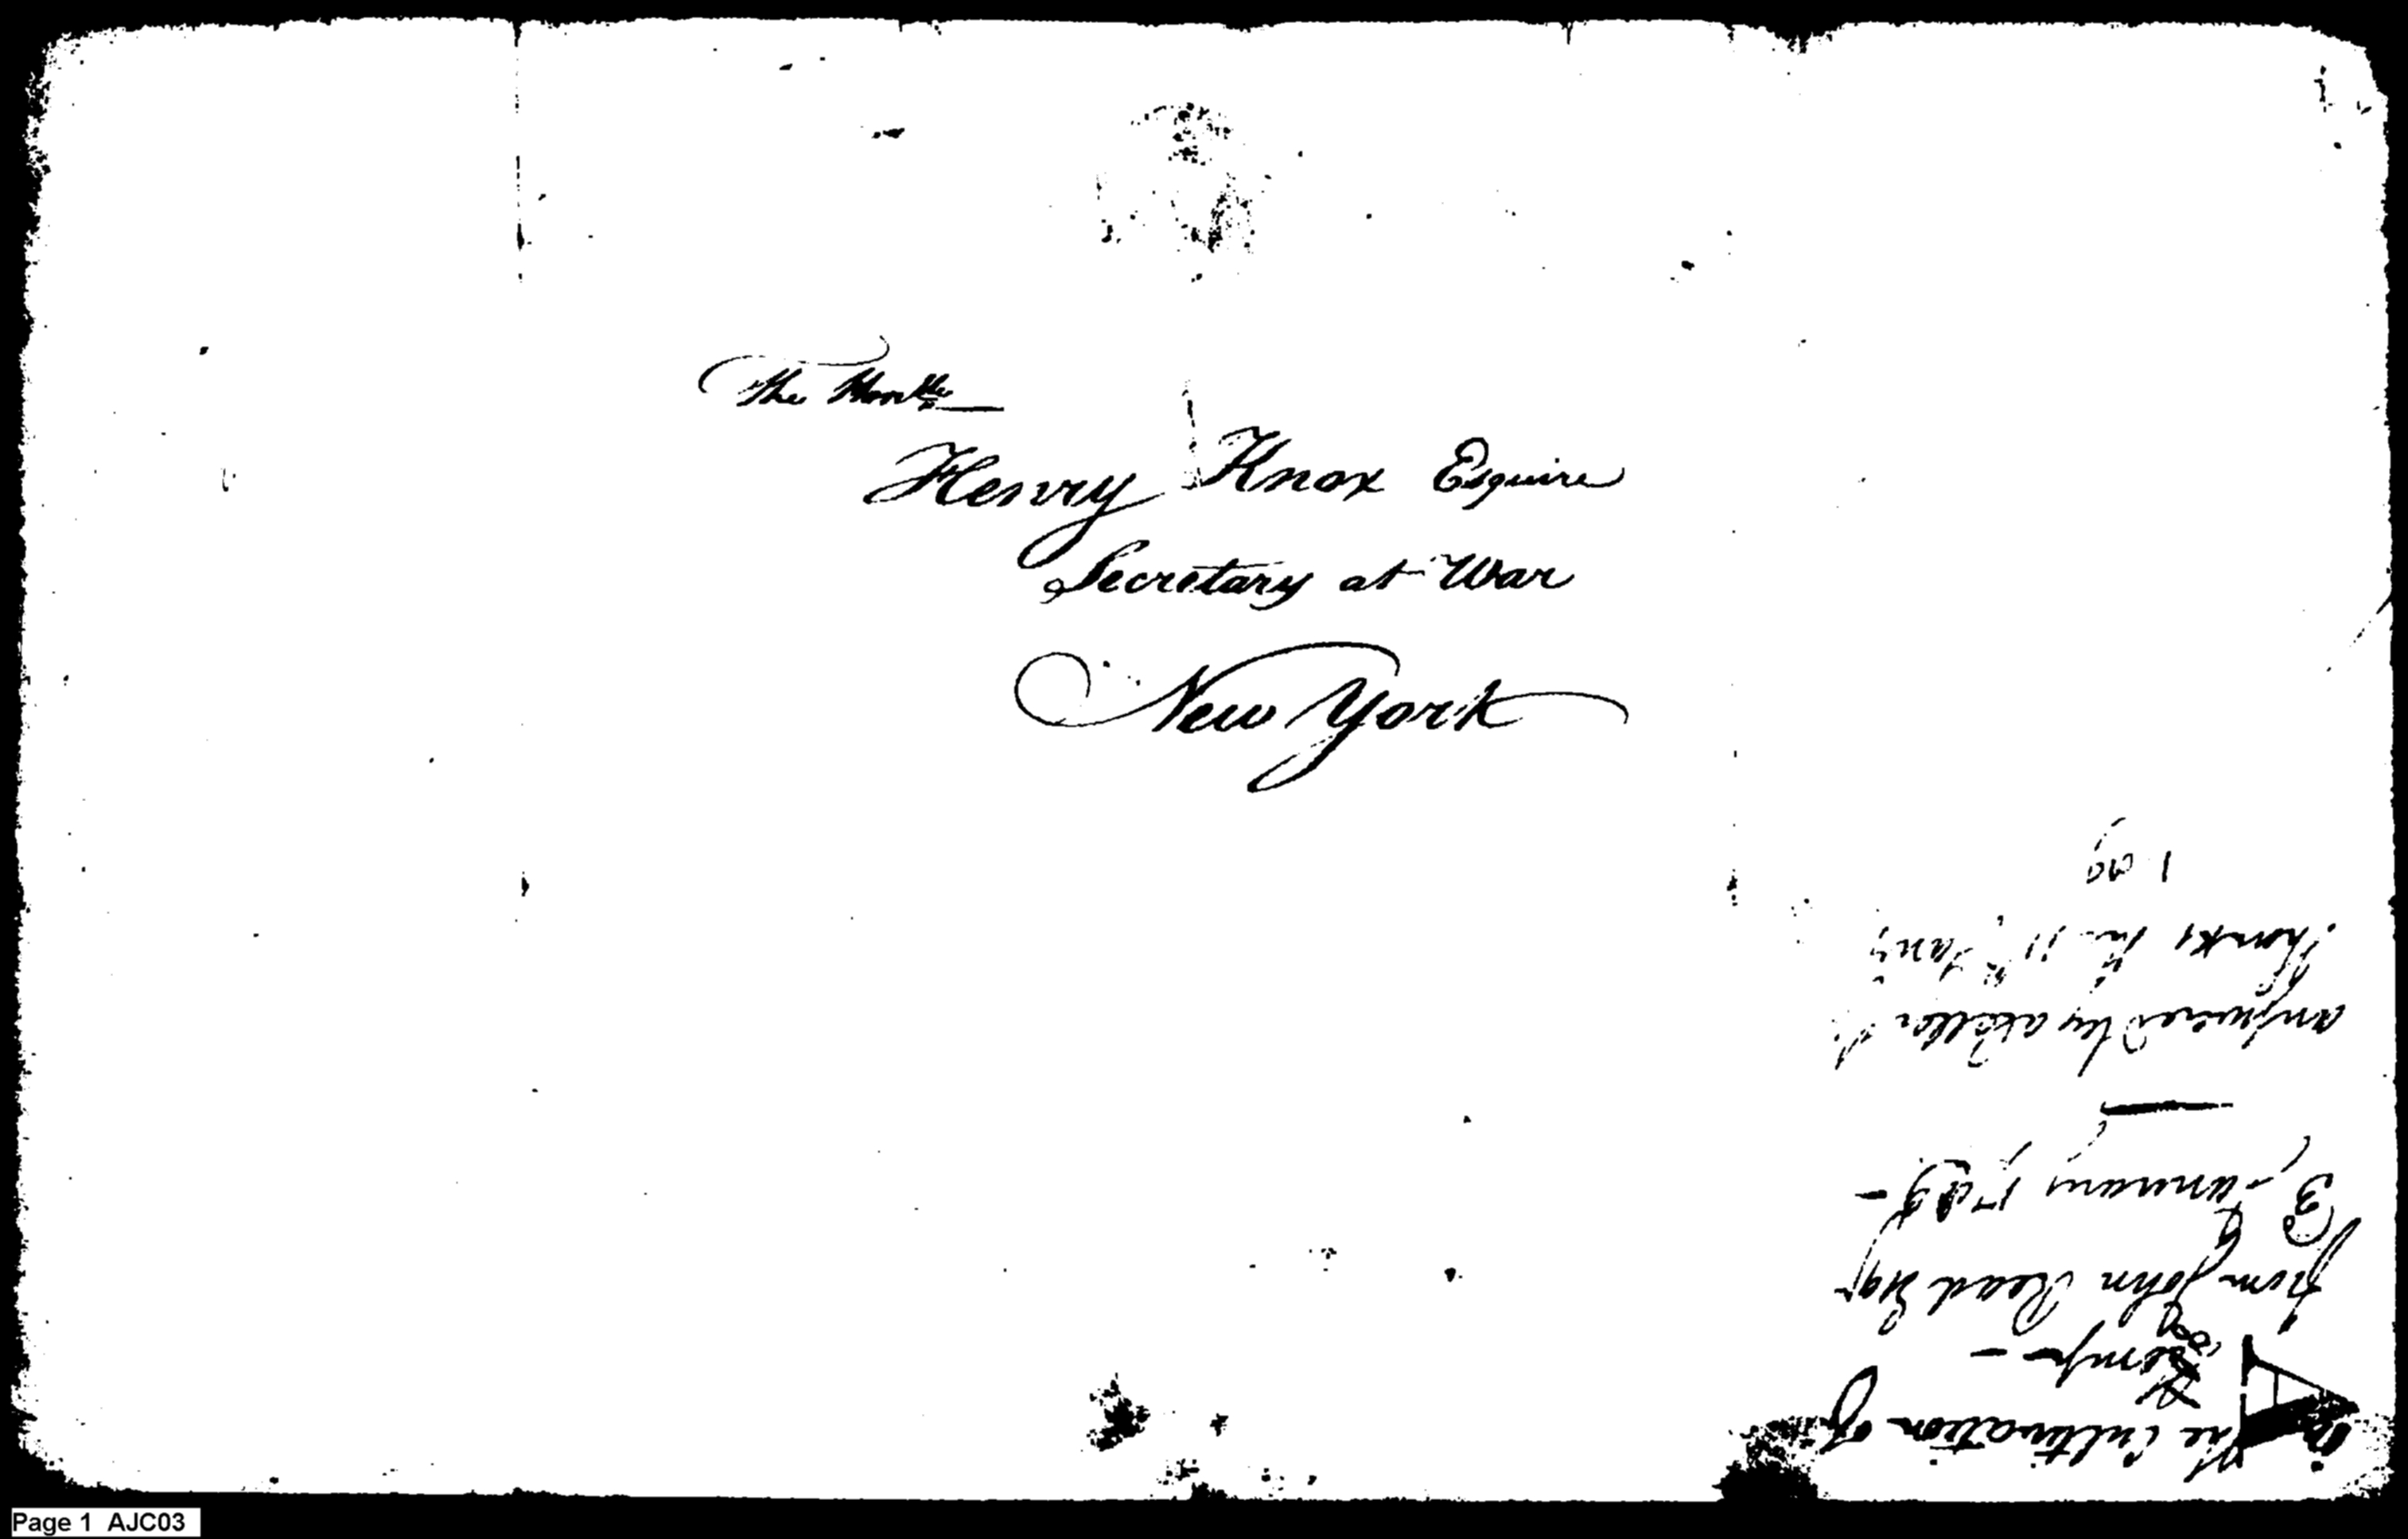 The Honble
Henry Knox Esquire
Secretary at War
New York
The Cultivation of
Hemp –
from John Read Esqr
3 January 1789 –
answered by a letter of
thanks the 11th Jany
1789
Page 1 AJC03